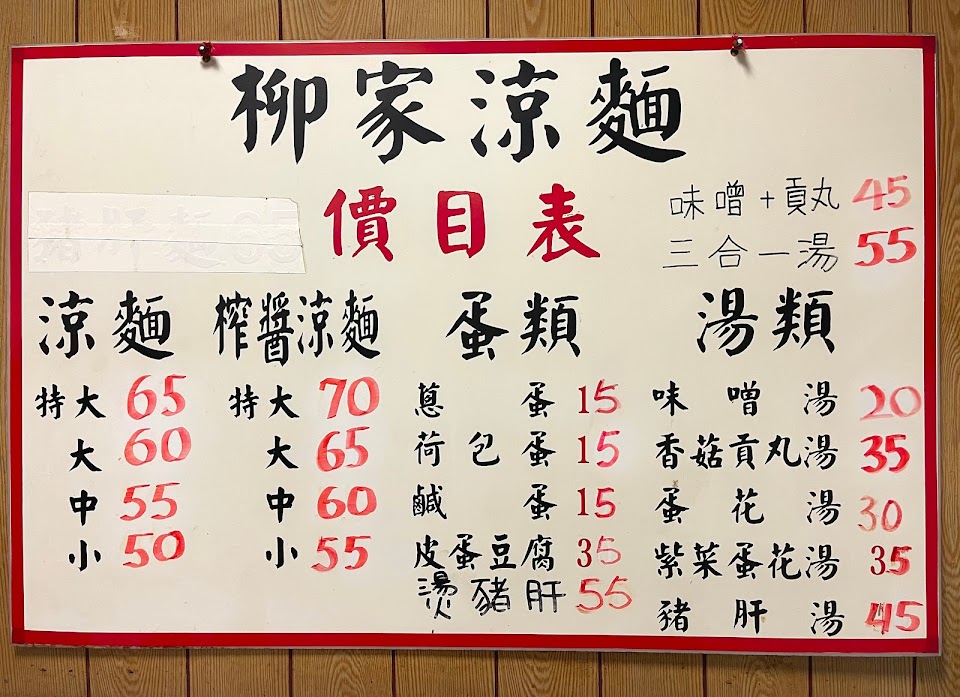 柳家涼麵
價目表
味噌+貢丸 45
三合一湯 55
涼麵
特大 65
大 60
中 55
小 50
榨醬涼麵
特大 70
大 65
中 60
小 55
蛋類
蔥蛋 15
荷包蛋 15
鹹蛋 15
皮蛋豆腐 35
燙豬肝 55
湯類
味噌湯 20
香菇貢丸湯 35
蛋花湯 30
紫菜蛋花湯 35
豬肝湯 45